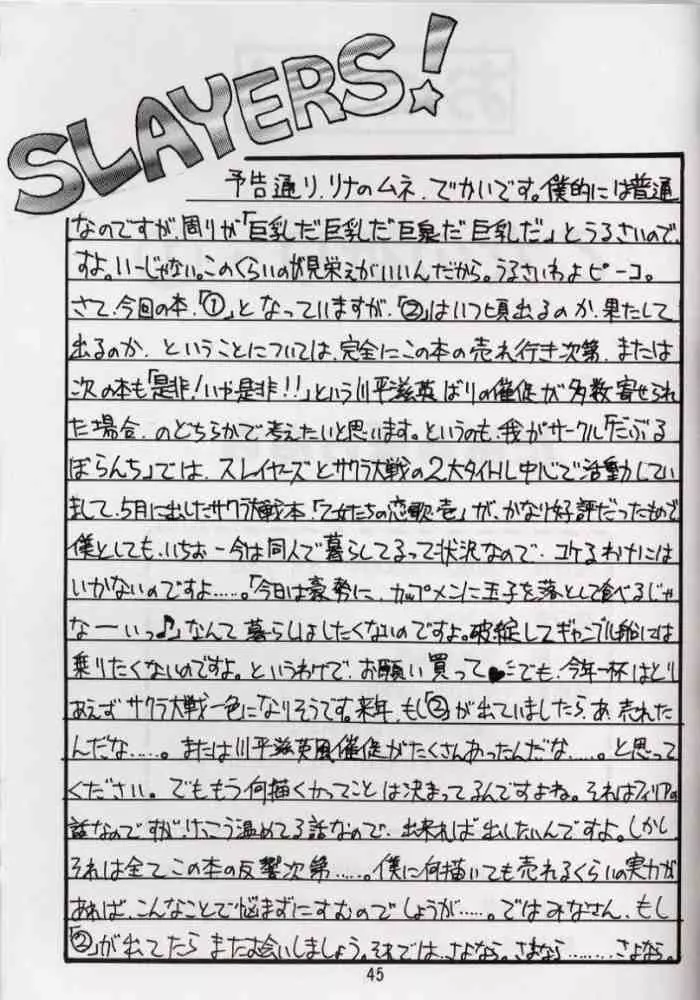 SLAYERS!
予告通り、リナのムネ、でかいです。僕的には普通
なのですが、周りが「巨乳だ巨乳だ巨乳だ巨乳だ」とうるさいので
すよ。いーじゃない。このくらいのが見栄えがいいんだから。うるさいわよピーコ。
さて、今回の本、「①」となっていますが、「②」はいつ頃出るのか、果たして
出るのか、ということについては、完全にこの本の売れ行き次第、または
次の本も「是非！いや是非！！」という川平滋英ばりの催促が多数寄せられ
た場合、のどちらかで考えたいと思います。というのも、我がサークル「だぶる
ぼらんち」では、スレイヤーズとサクラ大戦の2大タイトル中心で活動してい
まして、5月に出したサクラ大戦本「乙女たちの恋歌壱」が、かなり好評だったもので
僕としても、いちおー今は同人で暮らしてるって状況なので、コケるわけには
いかないのですよ……。「今日は豪勢に、カップメンに玉子を落として食べるじゃ
なーいっ♪」なんて暮らしはしたくないのですよ。破綻してギャンブル船には
乗りたくないのですよ。というわけで、お願い買って♥でも、今年一杯はとり
あえずサクラ大戦一色になりそうです。来年、もし「②」が出ていましたら、あ、売れた
んだな……。または川平滋英風催促がたくさんあったんだな……。と思って
ください。でももう何描くかってことは決まってるんですよね。それはフィリアの
話なのですが、けっこう温めてる話なので、出来れば出したいんですよ。しかし
それは全てこの本の反響次第……。僕に何描いても売れるくらいの実力が
あれば、こんなことで悩まずにすむのでしょうが……。ではみなさん、もし
「②」が出てたらまたお会いしましょう。それでは、さよなら。さよなら………さよなら。
45